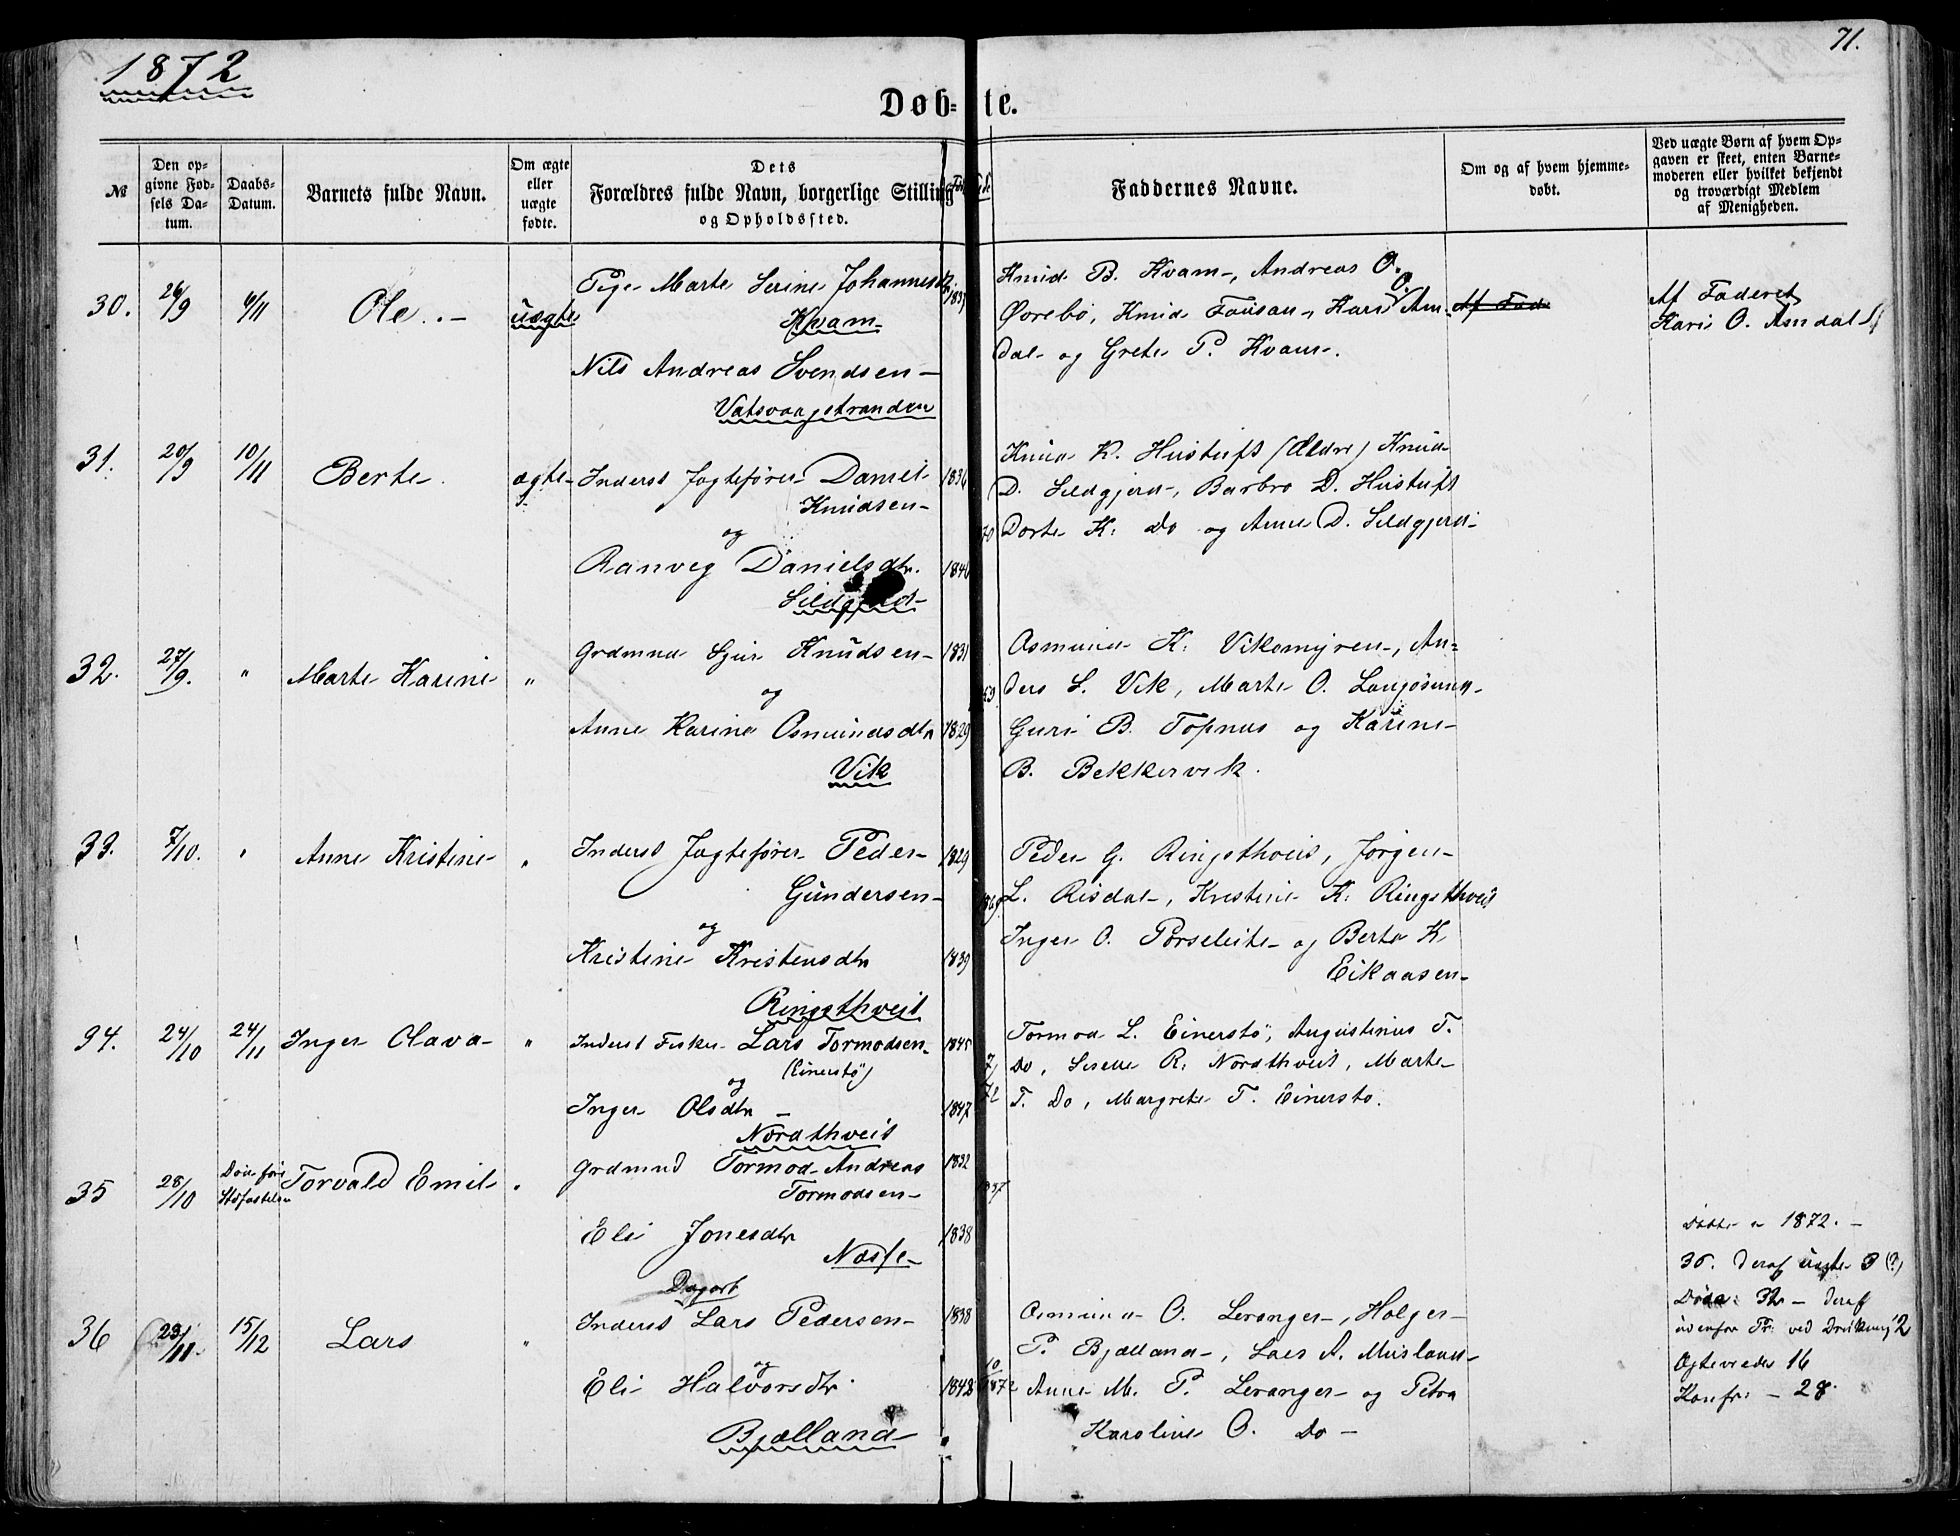 1872
71.
Døb-te.
№
Den op-
givne Fød-
sels Da-
tum.
Daabs-
Datum.
Barnets fulde Navn.
Om ægte
eller
uægte
fødte.
Dets
Forældres fulde Navn, borgerlige Stilling
og Opholdssted.
Faddernes Navne.
Om og af hvem hjemme-
døbt.
Ved uægte Børn af hvem Op-
gaven er skeet, enten Barne-
moderen eller hvilket bekjendt
og troværdigt Medlem
af Menigheden.
30. 26/9 4/11 Ole. uægte
Pige Marte Serine Johannesd
Kvam
Nils Andreas Svendsen
Vatsvaagstranden
Knud B. Kvam, Andreas O.
Øvrebø, Knud Fousan, Kari O. Am-
dal og Grete P. Kvam.
Af Fad
Af Faderet
Kari O. Amdal
31. 20/9 10/11 Berte. ægte
Inderst Jagtefører Daniel 1836
Knudsen
og
Ranveg Danielsdtr. 1840
Sildgjerd
Knud K. Hustuft (Ældre) Knud
D. Sildgjerd, Barbro D. Hustuft
Dorte K. Do og Anne D. Sildgjerd
32. 27/9. " Marte Karine "
Grdmnd Sjur Knudsen 1831
og
Anne Karine Osmundsdtr 1829
Vik
Osmund K. Vikemyren, An-
ders S. Vik, Marte O.
Guri B. Topnes og Karine
B. Bekkervik.
33. 7/10. " Anne Kristine "
Inderst Jagtefører Peder 1829
Gundersen
og
Kristine Kristensdtr 1839
Ringsthveit
Peder G. Ringsthveit, Jørgen
L. Risdal, Kristine K. Ringsthveit
Inger O. Porseleite og Berta K.
Eikaasen
34. 24/10 24/11 Inger Olava "
Inderst Fisker Lars Tormodsen 1845
(Einerstø)
og
Inger Olsdtr 1847
Nordthveit
7/72
Tormod L. Einerstø, Augustinus T.
Do, Serene R. Nordthveit, Marte
T. Do, Margrete T. Einerstø.
35 28/10 Døde før
Torvald Emil "
Grdmnd Tormod Andreas 1832
Tormodsen
Eli Jonesdtr 1838
Nasse
36 23/11 15/12 Lars "
Dagarb
Inderst Lars Pedersen 1838
og
Eli Halvorsdtr. 1842
Bjælland
10/1872
Osmund O. Leranger, Holger
P. Bjælland, Lars A. Misland
Anne M. P. Leranger og Petra
Karoline O. Do
Døbte i 1872.
36. Deraf uægte 3 (?)
Døde: 32 - deraf
udenfor Pr: ved Drukning 2
Ægteviede 16
Konfr: - 28.